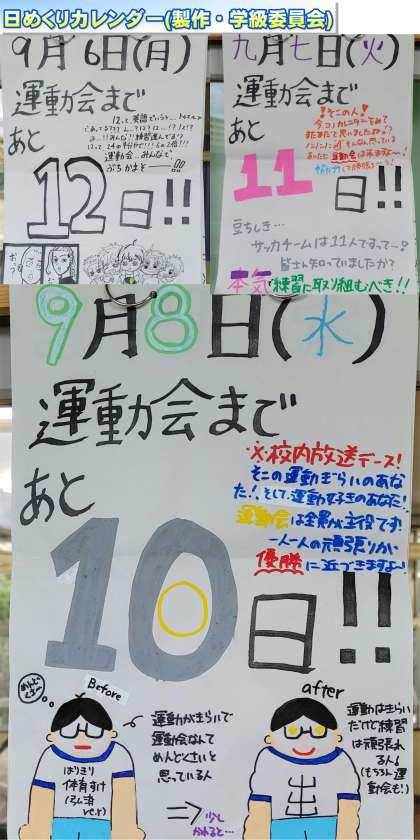 日めくりカレンダー(製作・学級委員会)
9月6日(月)
運動会まで
あと
12日!!
12って英語でいうと…トゥエルブ
運動会、みんなで
ぶちかまそーー!!
九月七日(火)
運動会まで
あと
11日!!
!そこの人!
今、このカレンダーをみて
豆ちしき…
サッカーチームは11人ですって〜?
皆さん知っていましたか?
本気で練習に取り組むべき!!
9月8日(水)
運動会まで
あと
10日!!
※校内放送デース!
そこの運動ぎらいのあな
た!そして、運動好きのあなた!
運動会は全員が主役です!
一人一人の頑張りがい
優勝に近づきますよ〜!
めんどくせ〜
Before
はりきり
体育すけ
運動がきらいで
運動会なんて
めんどくさいと
思っている人
⇒少し
かわると…
after
出
運動はきらい
だけど練習
は頑張れ
る人!
(もちろん運
動会も!)